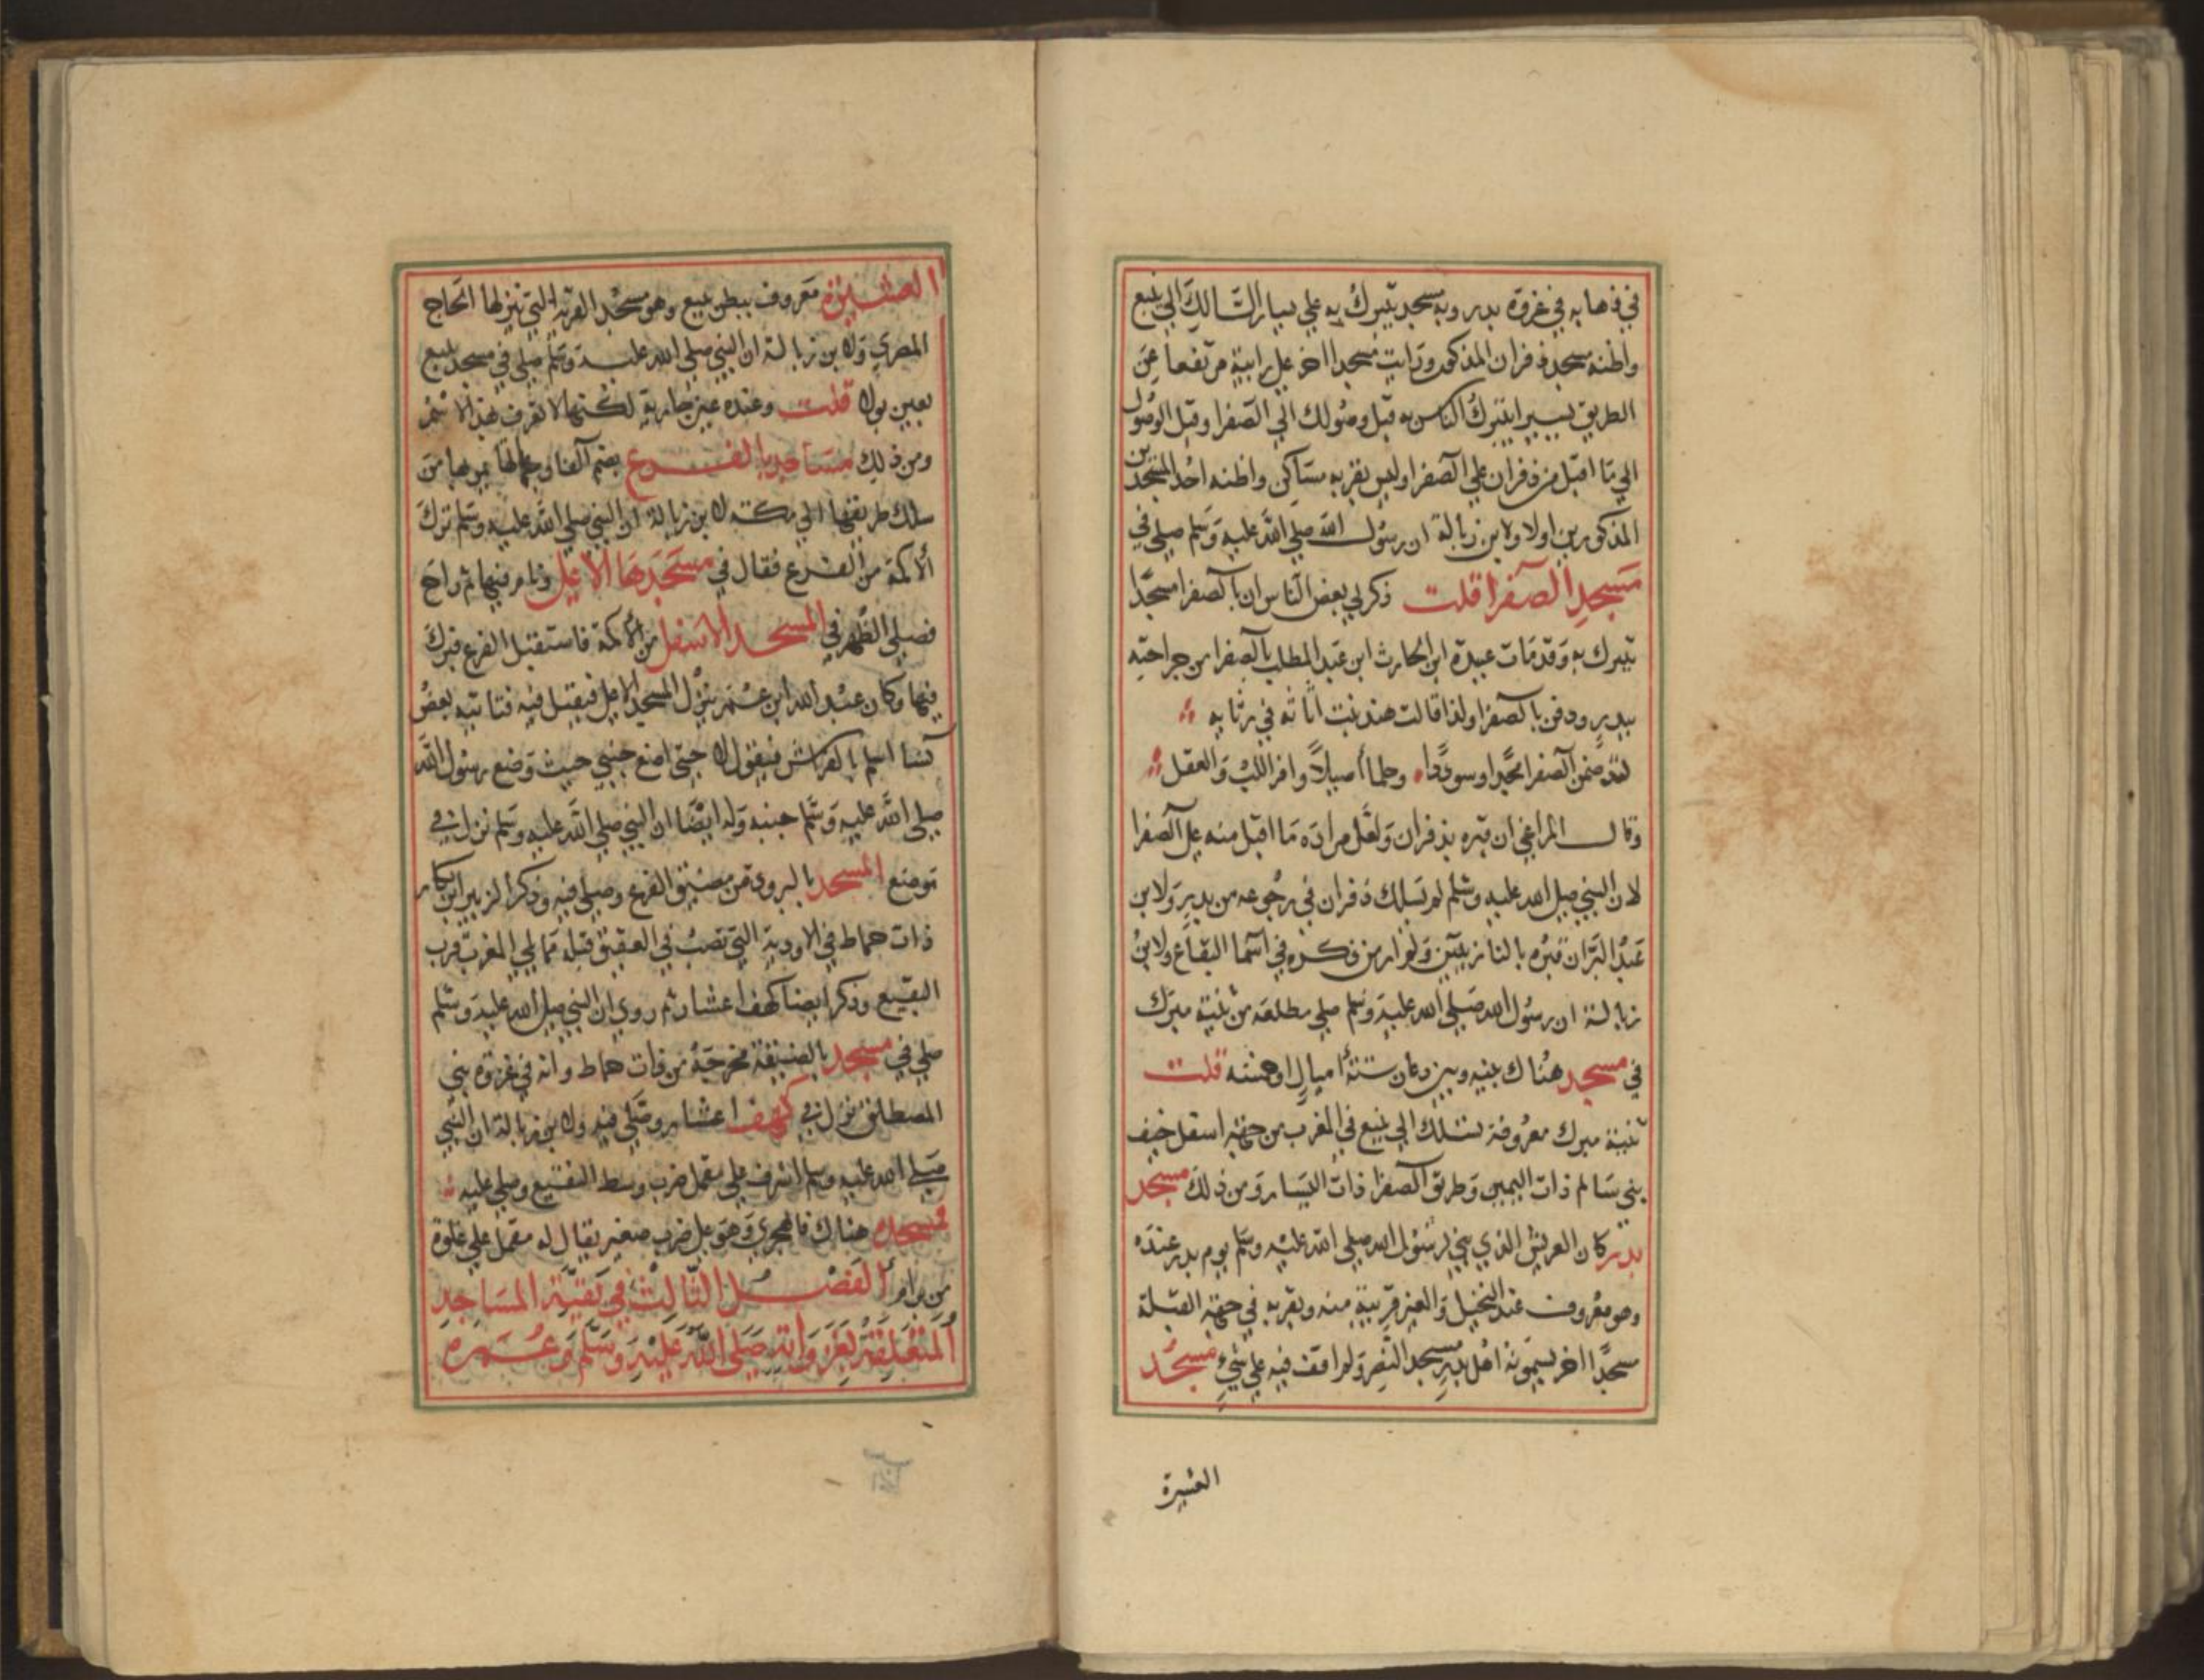 في ذهابه في غزوة بدر وبه مسجد يتبرك به علي يسار السالك الي ينبع
واظنه مسجد ذفران المذكور ورايت مسجدا اخر علي رابية مرتفعا عن
الطريق يسيرا يتبرك الناس به قبل وصولك الي الصفرا وقبل الوصول
الي ما اقبل من ذفران علي الصفرا وليس بقربه ساكن واظنه احد المسجدين
المذكورين اولا ولابن زبالة ان رسول الله صلي الله عليه وسلم صلي في
مسجد الصفرا قلت ذكر لي بعض الناس ان بالصفرا مسجدا
يتبرك به وقد مات عبيدة ابن الحارث ابن عبد المطلب بالصفرا من جراحته
ببدر ودفن بالصفرا ولذا قالت هند بنت اثاثه في رثايه
لقد ضمن الصفرا مجدا وسوددا وحلما اصيلا وافر اللب والعقل
وقال المراغي ان قبره بذفران ولعل مراده ما اقبل منه علي الصفرا
لان النبي صلي الله عليه وسلم لم يسلك ذفران في رجوعه من بدر ولابن
عبد البر ان قبره بالنازيتين ولم ار من ذكره في اسما البقاع ولابن
زبالة ان رسول الله صلي الله عليه وسلم صلي مطلعه من ثنية مبرك
في مسجد هناك بينه وبين دعان ستة اميال او خمسة قلت
ثنية مبرك معروفة تسلك الي ينبع في المغرب من جهة اسفل خيف
بني سالم ذات اليمين وطريق الصفرا ذات اليسار ومن ذلك مسجد
بدر كان العريش الذي بني لرسول الله صلي الله عليه وسلم يوم بدر عنده
وهو معروف عند النخيل والعين قريبة منه وبقربه في جهة القبلة
مسجدا اخر يسمونه اهل بدر مسجد النصر ولم اقف فيه علي شيء مسجد
العشيرة
العشيرة معروف ببطن ينبع وهو مسجد القرية التي ينزلها الحاج
المصري وله بن زبالة ان النبي صلي الله عليه وسلم صلي في مسجد ينبع
بعين بولا قلت وعنده عين جارية لكنها لا تعرف بهذا الاسم
ومن ذلك مساجد بالفرع بضم الفا بها يمر بها من
سلك طريقها الي مكة له بن زبالة ان النبي صلي الله عليه وسلم نزل
الاكمة من الفرع فقال في مسجدها الاعلي ونام فيها ثم راح
فصلي الظهر في المسجد الاسفل من الاكمة فاستقبل الفرع فبرك
فيها وكان عبد الله ابن عمر ينزل المسجد الاعلي فيقيل فيه فتاتيه بعض
نسا اسلم بالفراش فيقول لا حتي اضع جنبي حيث وضع رسول الله
صلي الله عليه وسلم جنبه وله ايضا ان النبي صلي الله عليه وسلم نزل في
موضع المسجد بالبرود من مضيق الفرع وصلي فيه وذكر الزبير ابن بكار
ذات حماط في الاودية التي تصب في العقيق قبله مما يلي المغرب قرب
البقيع وذكر ايضا كهف اعشار ثم روي ان النبي صلي الله عليه وسلم
صلي في مسجد بالضيقة مخرجه من ذات حماط وانه في غزوة بني
المصطلق نزل في كهف اعشار وصلي فيه وله بن زبالة ان النبي
صلي الله عليه وسلم اشرف علي مقمل ضرب وسط النقيع وصلي عليه
فمسجده هناك قال الهجري وهو علي ضرب صغير يقال له مقمل علي غلوة
من برام الفصل الثالث في بقية المساجد
المتعلقة بغزواته صلي الله عليه وسلم وعمره